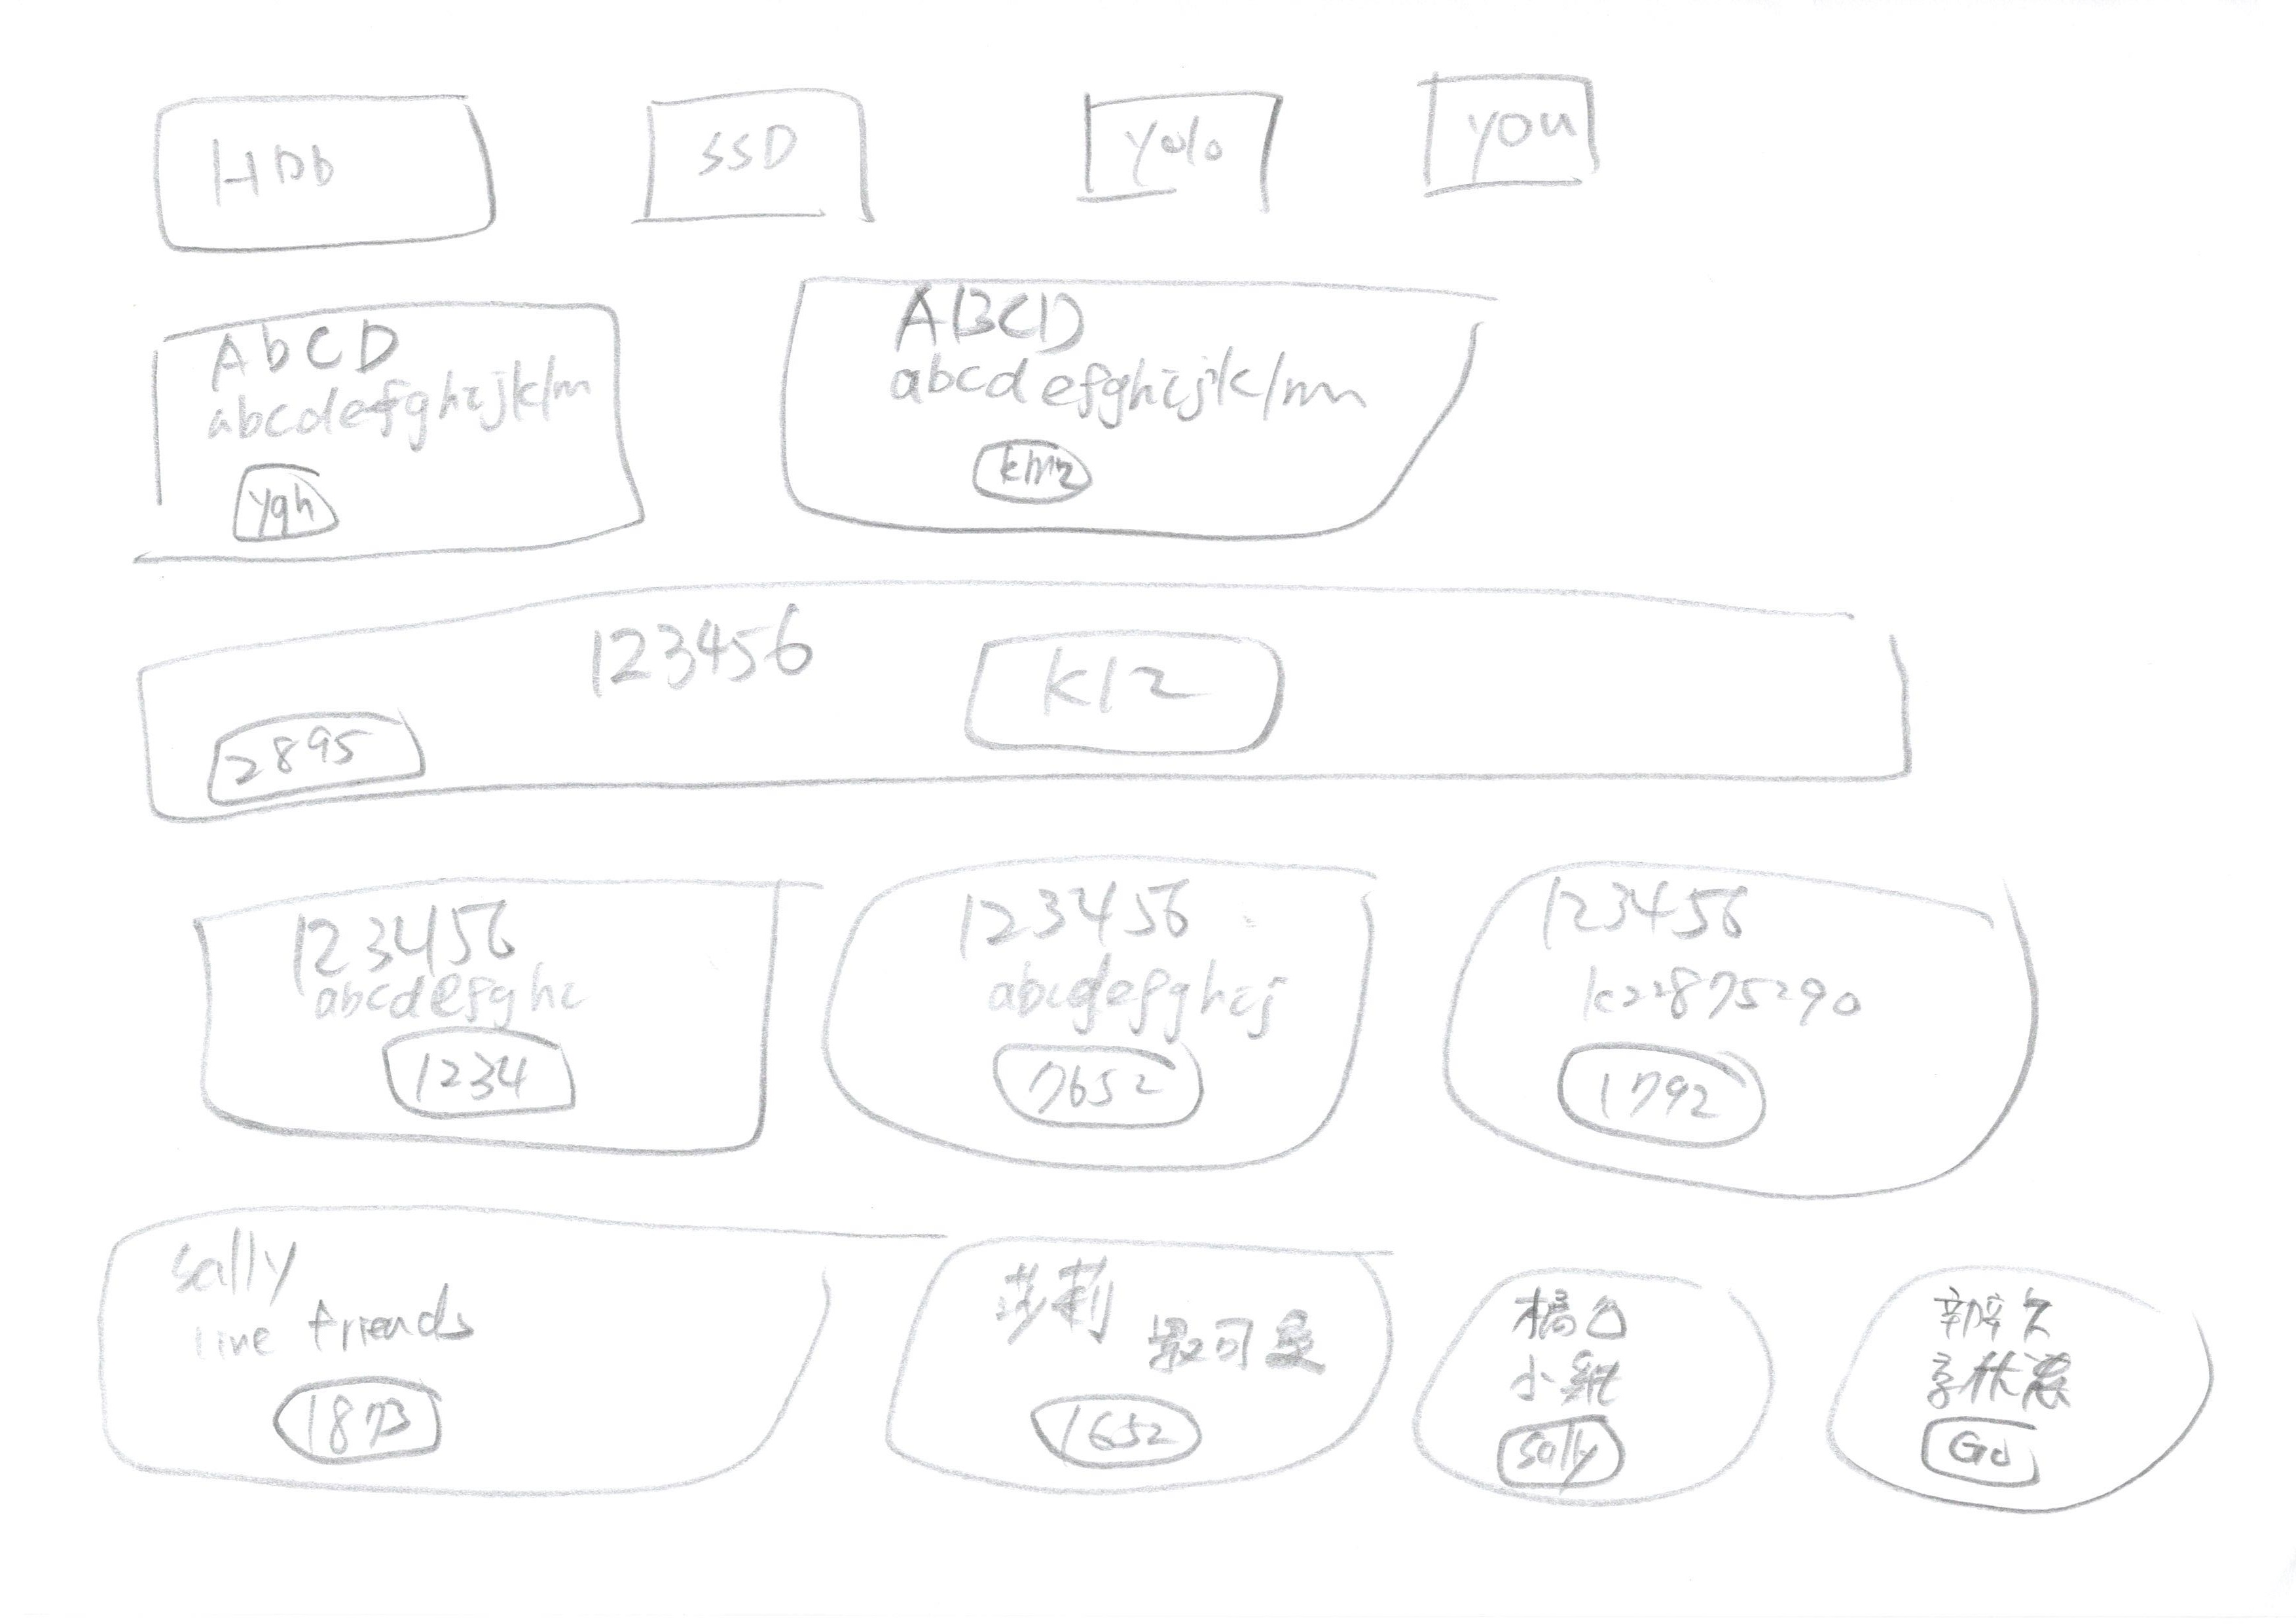 HDD
SSD
yolo
you
AbCD
abcdefghijklm
ygh
ABCD
abcdefghijklmn
km2
123456
k12
2895
123456
abcdefghi
1234
123456
abcdefghij
7652
123456
k22875290
1792
sally
line friends
1873
莎莉
最可愛
1652
橘色
小雞
sally
Go